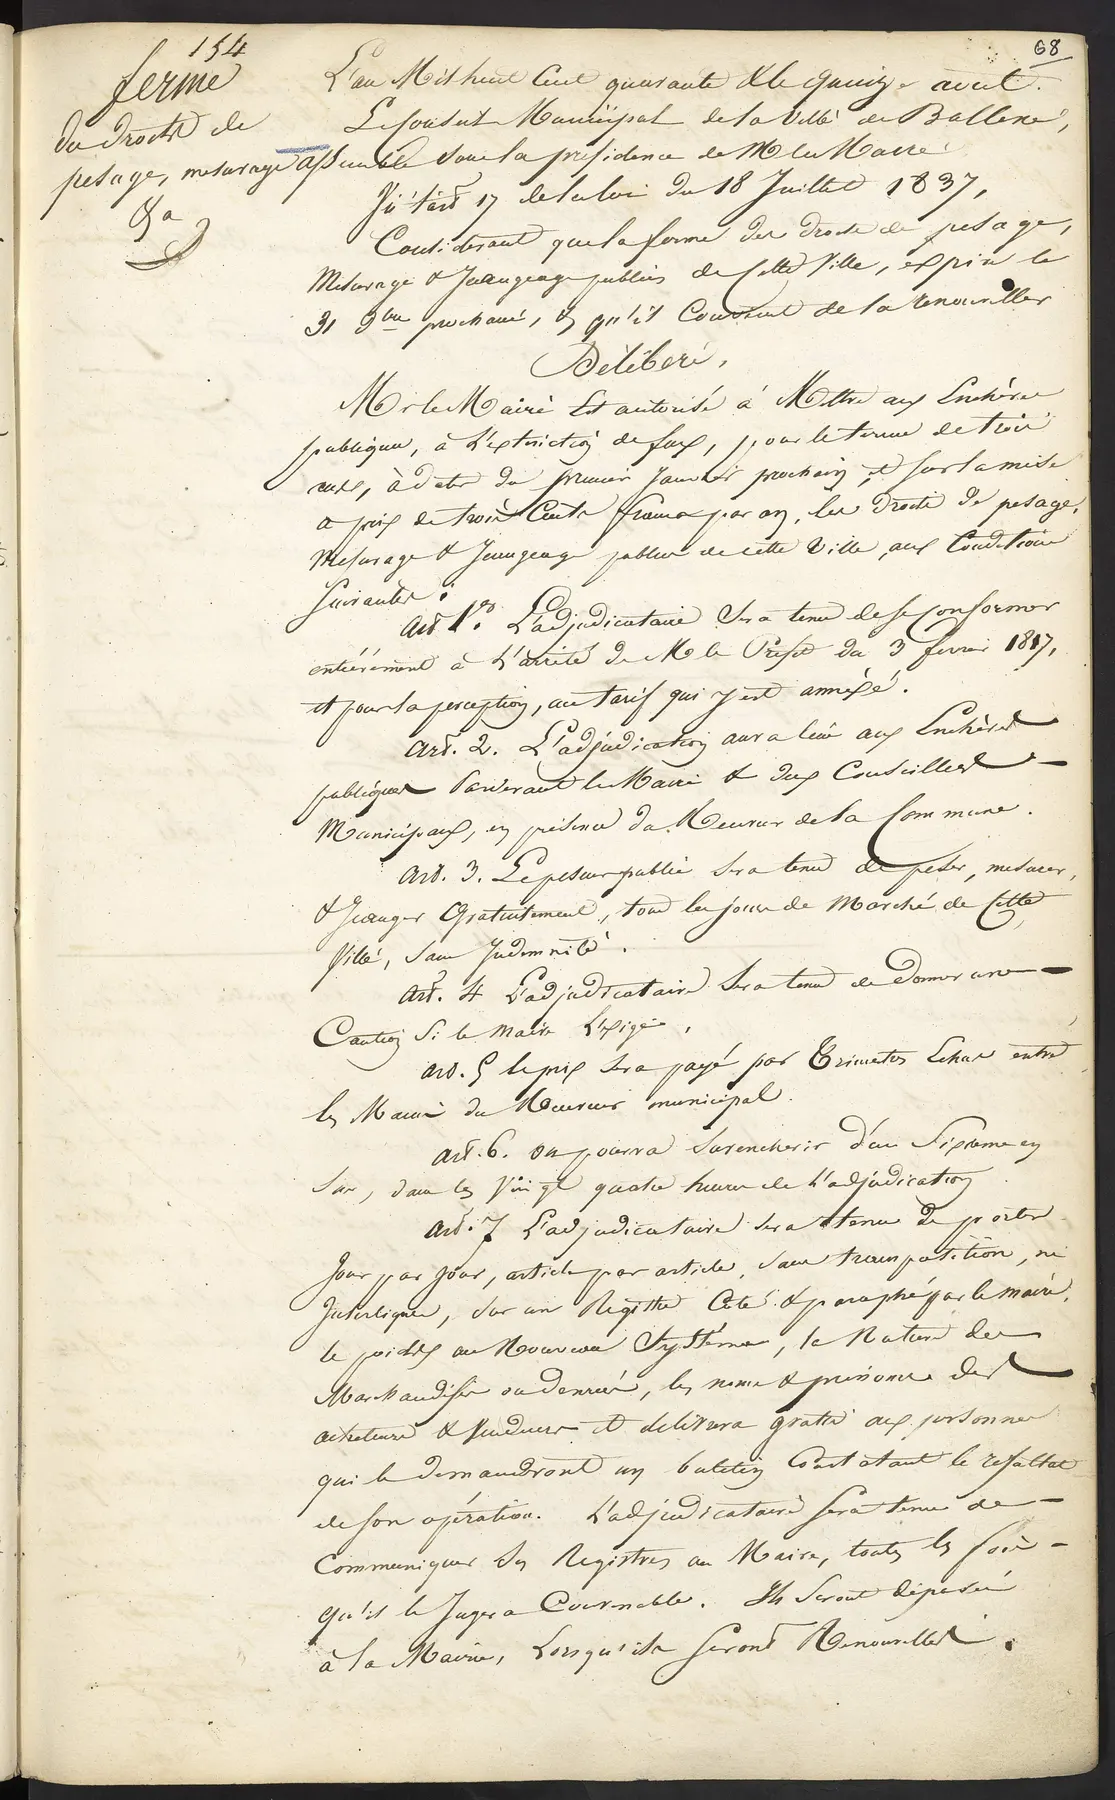 154
68
ferme
du droits de
pesage, mesurage
&a
L'an Mil huit Cent quarante & le quinze avril.
Le Conseil Municipal de la Ville de
assemblé sous la présidence de M. le Maire
Vu l'art 17 de la loi du 18 Juillet 1837,
Considérant que la ferme des droits de pesage,
Mesurage & Jaugeage publics de Cette Ville, expire le
31 Xbre prochain, & qu'il Convient de la renouveller
Délibéré,
Mr le Maire Est autorisé à Mettre aux Enchères
publiques, à L'extinction de feux, pour le terme de trois
ans, à dater du premier Janvier prochain, et sur la mise
a prix de trois Cents francs par an, les droits de pesage,
Mesurage & Jaugeage publics de cette Ville, aux Conditions
Suivantes :
Art 1er. L'adjudicataire Sera tenu de se Conformer
entiérement à L'arrêté de M le Préfet du 3 fevrier 1817,
et pour la perception, au tarif qui y est annéxé.
Art. 2. L'adjudication aura lieu aux Enchères
publiques Pardevant le Maire & deux Conseillers
Municipaux, en présence du Receveur de la Commune.
Art. 3. Le peseur public sera tenu de peser, mesurer,
& Jauger Gratuitement, tous les jours de Marché de Cette
Ville, sans Indemnité.
Art. 4 L'adjudicataire Sera tenu de donner une
Caution Si le Maire L'exige.
Art. 5 le prix sera payé par Trimestres Echus entre
les Mains du Receveur municipal.
Art. 6. On pourra Surencherir d'un Sixieme en
Sus, dans les Vingt quatre heures de L'adjudication
Art. 7 L'adjudicataire sera tenu de porter
Jour par Jour, article par article, sans transposition, ni
Interlignes, sur un Registre Coté & paraphé par le maire,
le poids au Nouveau Systême, la Nature des
Marchandises ou denrées, les noms & prénoms des
acheteurs & Vendeurs et délivrera gratis aux personnes
qui le demanderont un bulletin Constatant le résultat
de son opération. L'adjudicataire Sera tenu de
Communiquer Ses Registres au Maire, toutes les fois
qu'il le Jugera Convenable. Ils Seront déposés
à la Mairie, Lorsqu'ils Seront Renouvellés.